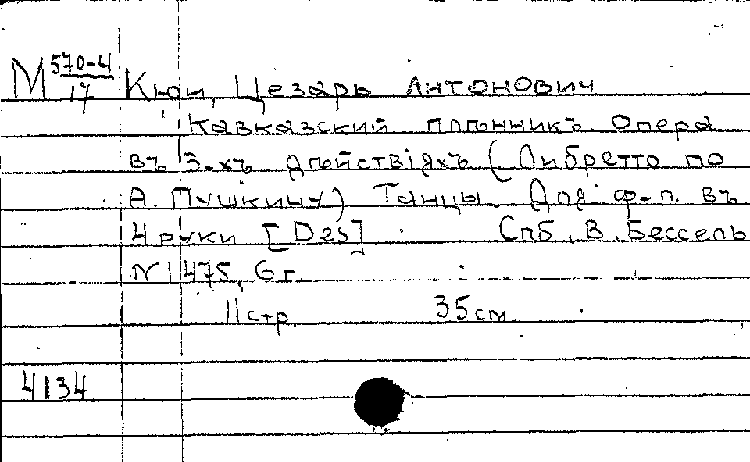 М 570-4/17 Кюи, Цезарь Антонович
Кавказский плѣнникъ Опера
въ 3-хъ дѣйствіяхъ (Либретто по
А. Пушкину) Танцы. Для ф-п. въ
4 руки [Des] Спб, В. Бессель
N 1475, Б г.
11 стр. 35 см.
4134